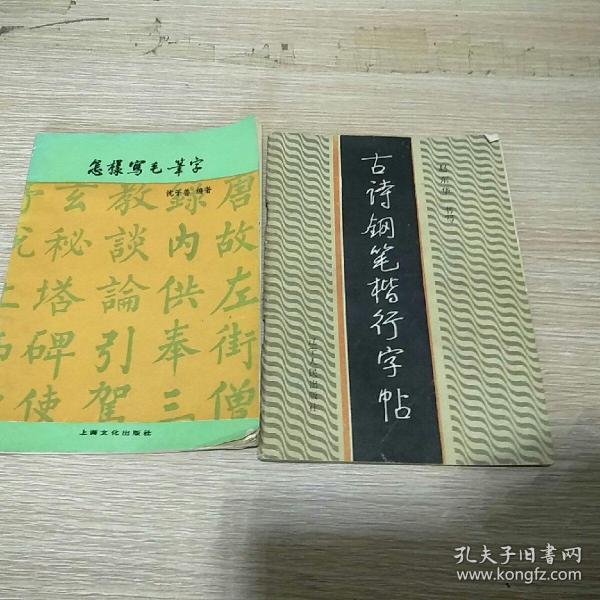 怎樣寫毛筆字
沈子善 编者
唐故左街僧
錄內供奉三
教談論引駕
玄秘塔碑
使
上海文化出版社
古诗钢笔楷行字帖
辽宁人民出版社
孔夫子旧书网
www.kongfz.com